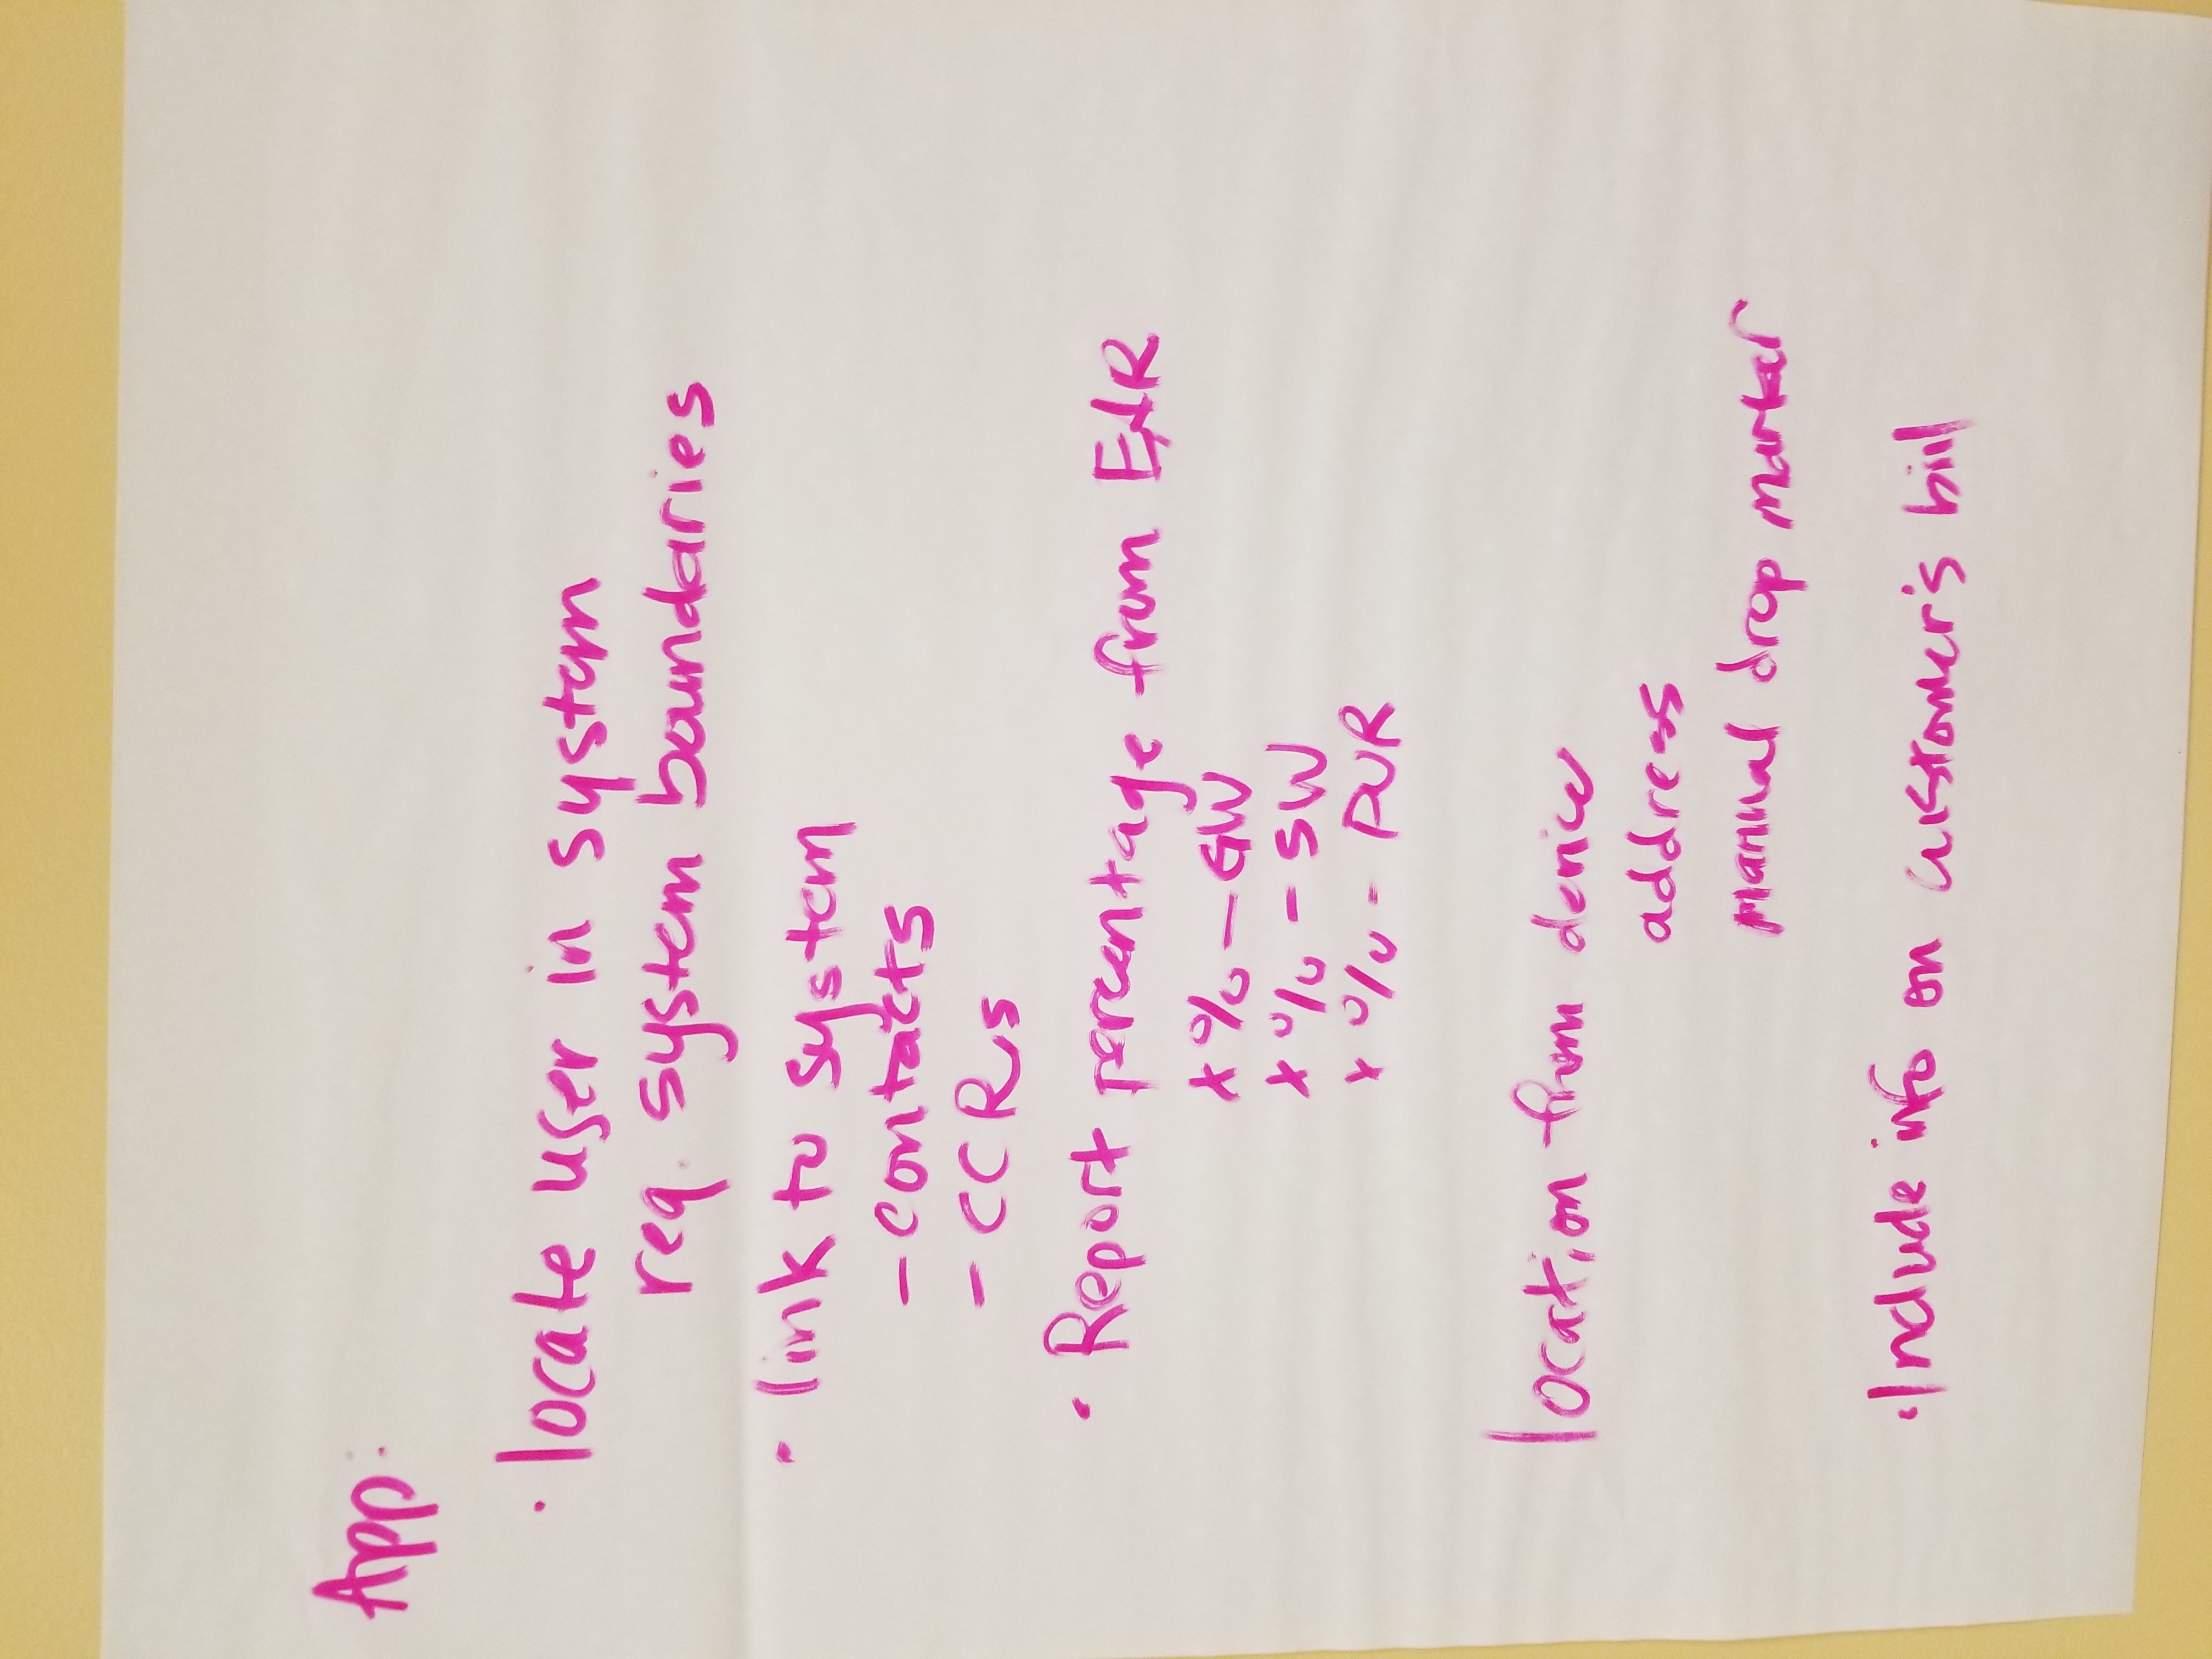 App:
· locate user in system
req. system boundaries
· link to system
- contacts
- CCRs
· Report percentage from EAR
x % - GW
x % - SW
x % - PUR
location from device
address
manual drop marker
· Include info on customer's bill